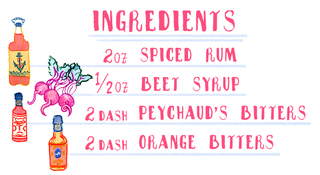 INGREDIENTS
2oz SPICED RUM
1/2oz BEET SYRUP
2 DASH PEYCHAUD'S BITTERS
2 DASH ORANGE BITTERS